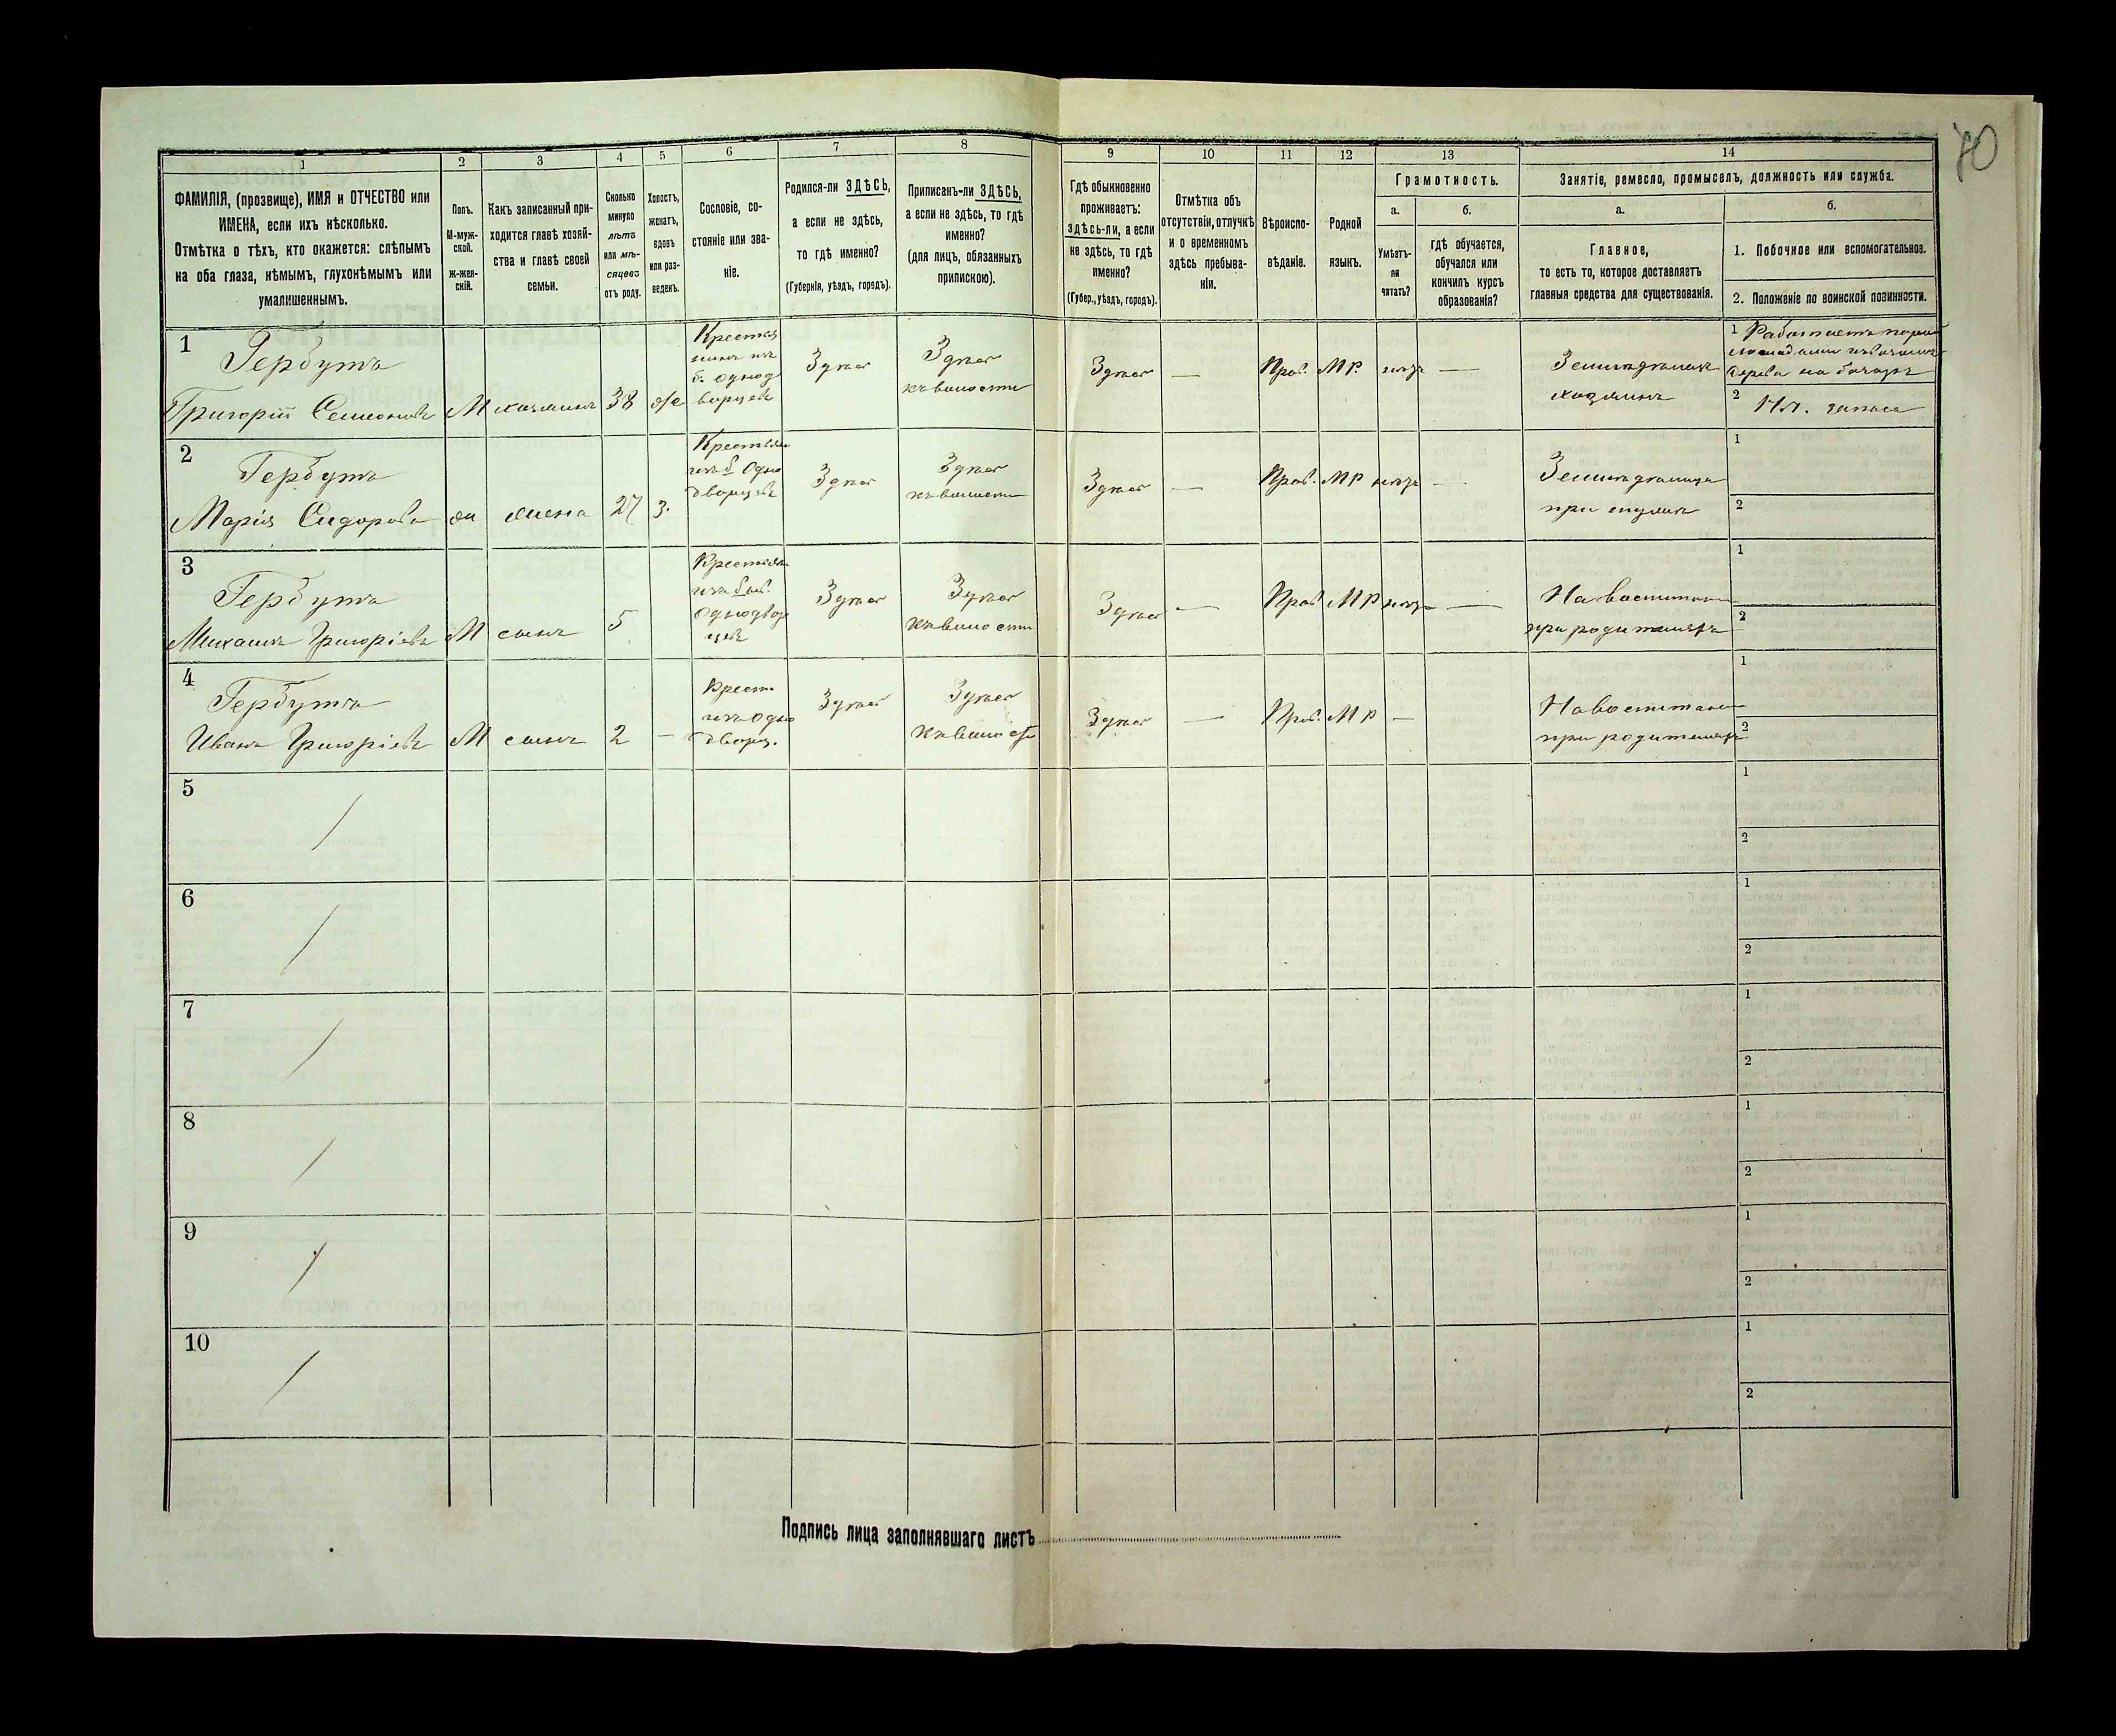 70
1
2
3
4
5
6
7
8
9
10
11
12
13
14
ФАМИЛІЯ, (прозвище), ИМЯ и ОТЧЕСТВО или
ИМЕНА, если ихъ нѣсколько.
Отмѣтка о тѣхъ, кто окажется: слѣпымъ
на оба глаза, нѣмымъ, глухонѣмымъ или
умалишеннымъ.
Полъ.
М-муж-
ской.
ж-жен-
скій.
Какъ записанный при-
ходится главѣ хозяй-
ства и главѣ своей
семьи.
Сколько
минуло
лѣтъ
или мѣ-
сяцевъ
отъ роду.
Холостъ,
женатъ,
вдовъ
или раз-
веденъ.
Сословіе, со-
стояніе или зва-
ніе.
Родился-ли ЗДѢСЬ,
а если не здѣсь,
то гдѣ именно?
(Губернія, уѣздъ, городъ).
Приписанъ-ли ЗДѢСЬ,
а если не здѣсь, то гдѣ
именно?
(для лицъ, обязанныхъ
припискою).
Гдѣ обыкновенно
проживаетъ:
здѣсь-ли, а если
не здѣсь, то гдѣ
именно?
(Губер., уѣздъ, городъ).
Отмѣтка объ
отсутствіи, отлучкѣ
и о временномъ
здѣсь пребыва-
ніи.
Вѣроиспо-
вѣданіе.
Родной
языкъ.
Грамотность.
а.
Умѣетъ-
ли
читать?
б.
гдѣ обучается,
обучался или
кончилъ курсъ
образованія?
Занятіе, ремесло, промыселъ, должность или служба.
а.
Главное,
то есть то, которое доставляетъ
главныя средства для существованія.
б.
1. Побочное или вспомогательное.
2. Положеніе по воинской повинности.
1
Гербутъ
Григорій Семеоновъ
М
хозяинъ
38
ж
Крестья
нинъ изъ
б. однод
ворцевъ
Здѣсь
Здѣсь
къ волости
Здѣсь
—
Прав.
МР.
нѣтъ
—
Земледѣлецъ
хозяинъ
1
Работаетъ
дерева на
2
Ил. запаса
2
Гербутъ
Марія Сидорова
ж
жена
27
з.
Крестьян
изъ б одно
дворцевъ
Здѣсь
Здѣсь
къ волости
Здѣсь
—
Прав.
МР
нѣтъ
—
Земледѣлица
при мужѣ
1
2
3
Гербутъ
Михаилъ Григоріевъ
М
сынъ
5
Крестьян
изъ быв.
однодвор
цевъ
Здѣсь
Здѣсь
къ волости
Здѣсь
—
Прав
МР
нѣтъ
—
На воспитан
при родителяхъ
1
2
4
Гербутъ
Иванъ Григоріевъ
М
сынъ
2
—
Крест.
изъ одно
дворц.
Здѣсь
Здѣсь
къ волости
Здѣсь
—
Прав.
МР
—
На воспитани
при родителяхъ
1
2
5
1
2
6
1
2
7
1
2
8
1
2
9
1
2
10
1
2
Подпись лица заполнявшаго листъ